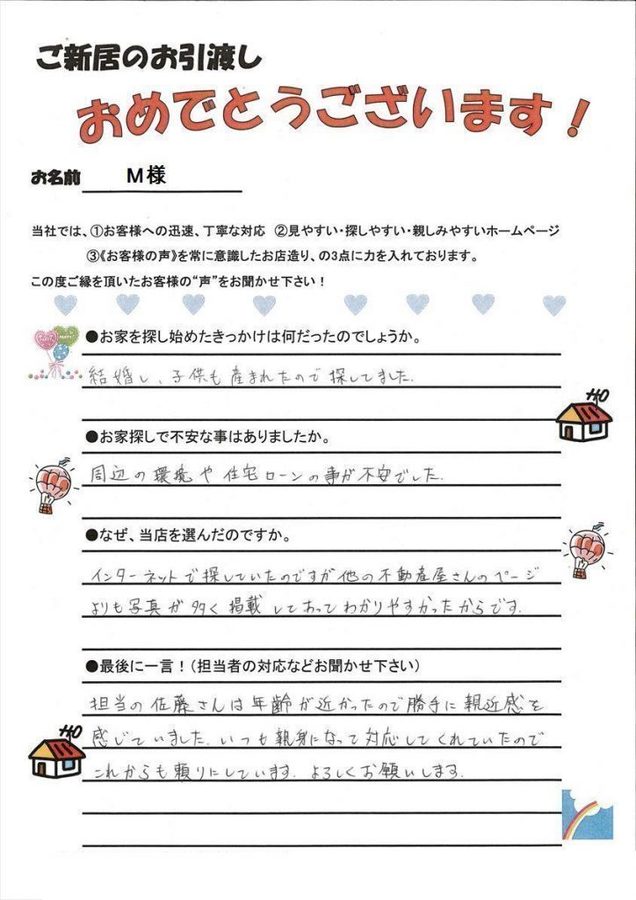 ご新居のお引渡し
おめでとうございます！
お名前 M様
当社では、①お客様への迅速、丁寧な対応 ②見やすい・探しやすい・親しみやすいホームページ
③《お客様の声》を常に意識したお店造り、の3点に力を入れております。
この度ご縁を頂いたお客様の“声”をお聞かせ下さい！
●お家を探し始めたきっかけは何だったのでしょうか。
結婚し、子供も産まれたので探してました。
●お家探しで不安な事はありましたか。
周辺の環境や住宅ローンの事が不安でした。
●なぜ、当店を選んだのですか。
インターネットで探していたのですが他の不動産屋さんのページ
よりも写真が多く掲載してあってわかりやすかったからです。
●最後に一言！（担当者の対応などお聞かせ下さい）
担当の佐藤さんは年齢が近かったので勝手に親近感を
感じていました。いつも親身になって対応してくれていたので
これからも頼りにしています。よろしくお願いします。